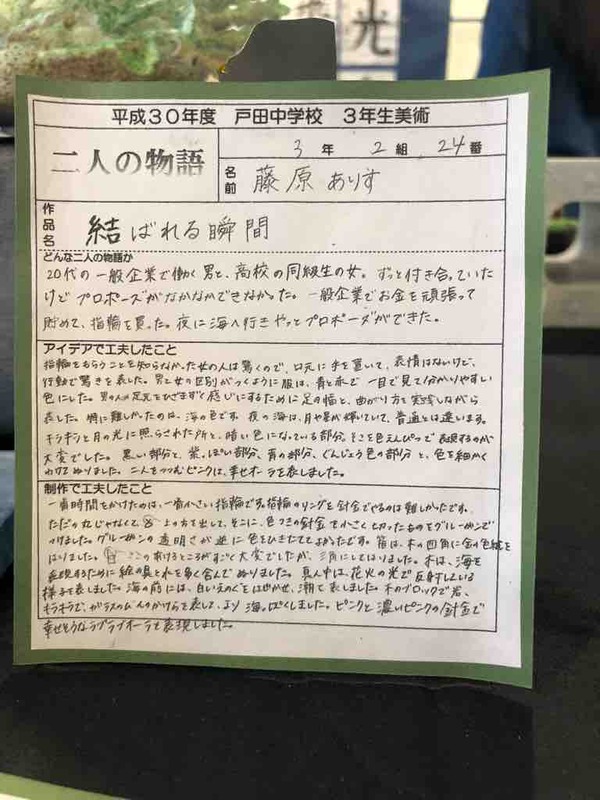 光
平成30年度 戸田中学校 3年生美術
二人の物語
3年 2組 24番
名前 藤原ありす
作品名 結ばれる瞬間
どんな二人の物語か
20代の一般企業で働く男と、高校の同級生の女。ずっと付き合っていた
けどプロポーズがなかなかできなかった。一般企業でお金を頑張って
貯めて、指輪を買った。夜に海へ行きやっとプロポーズができた。
アイデアで工夫したこと
指輪をもらうことを知らなかった女の人は驚くので、口元に手を置いて、表情はないけど、
行動で驚きを表した。男と女の区別がつくように服は、青と赤で一目で見て分かりやすい
色にした。男の人は足元をひざまずく感じにするために足の幅と、曲がり方を実践しながら
表した。特に難しかったのは、海の色です。夜の海は、月や星が輝いていて、普通とは違います。
キラキラと月の光に照らされた所と、暗い色になっている部分。そこを色えんぴつで表現するのが
大変でした。黒い部分と、紫っぽい部分、青の部分、ぐんじょう色の部分と、色を細かく
わけてぬりました。二人をつつむピンクは、幸せオーラを表しました。
制作で工夫したこと
一番時間をかけたのは、一番小さい指輪です。指輪のリングを針金でやるのは難しかったです。
ただの丸じゃなくて、上の方を出して、そこに、色つきの針金を小さく切ったものをグルーガンで
つけました。グルーガンの透明さが逆に色をひきたててよかったです。箱は、木の四角に金の色紙を
はりました。ここのあけるところがすごく大変でしたが、三角にしてはりました。木は、海を
表現するために絵の具と水を多く含んでぬりました。真ん中は、花火の光で反射している
様子を表しました。海の前には、白いえのぐをはやかせ、潮を表しました。木のブロックで岩、
キラキラで、ガラスのかけらを表して、より海っぽくしました。ピンクと濃いピンクの針金で
幸せそうなラブラブオーラを表現しました。